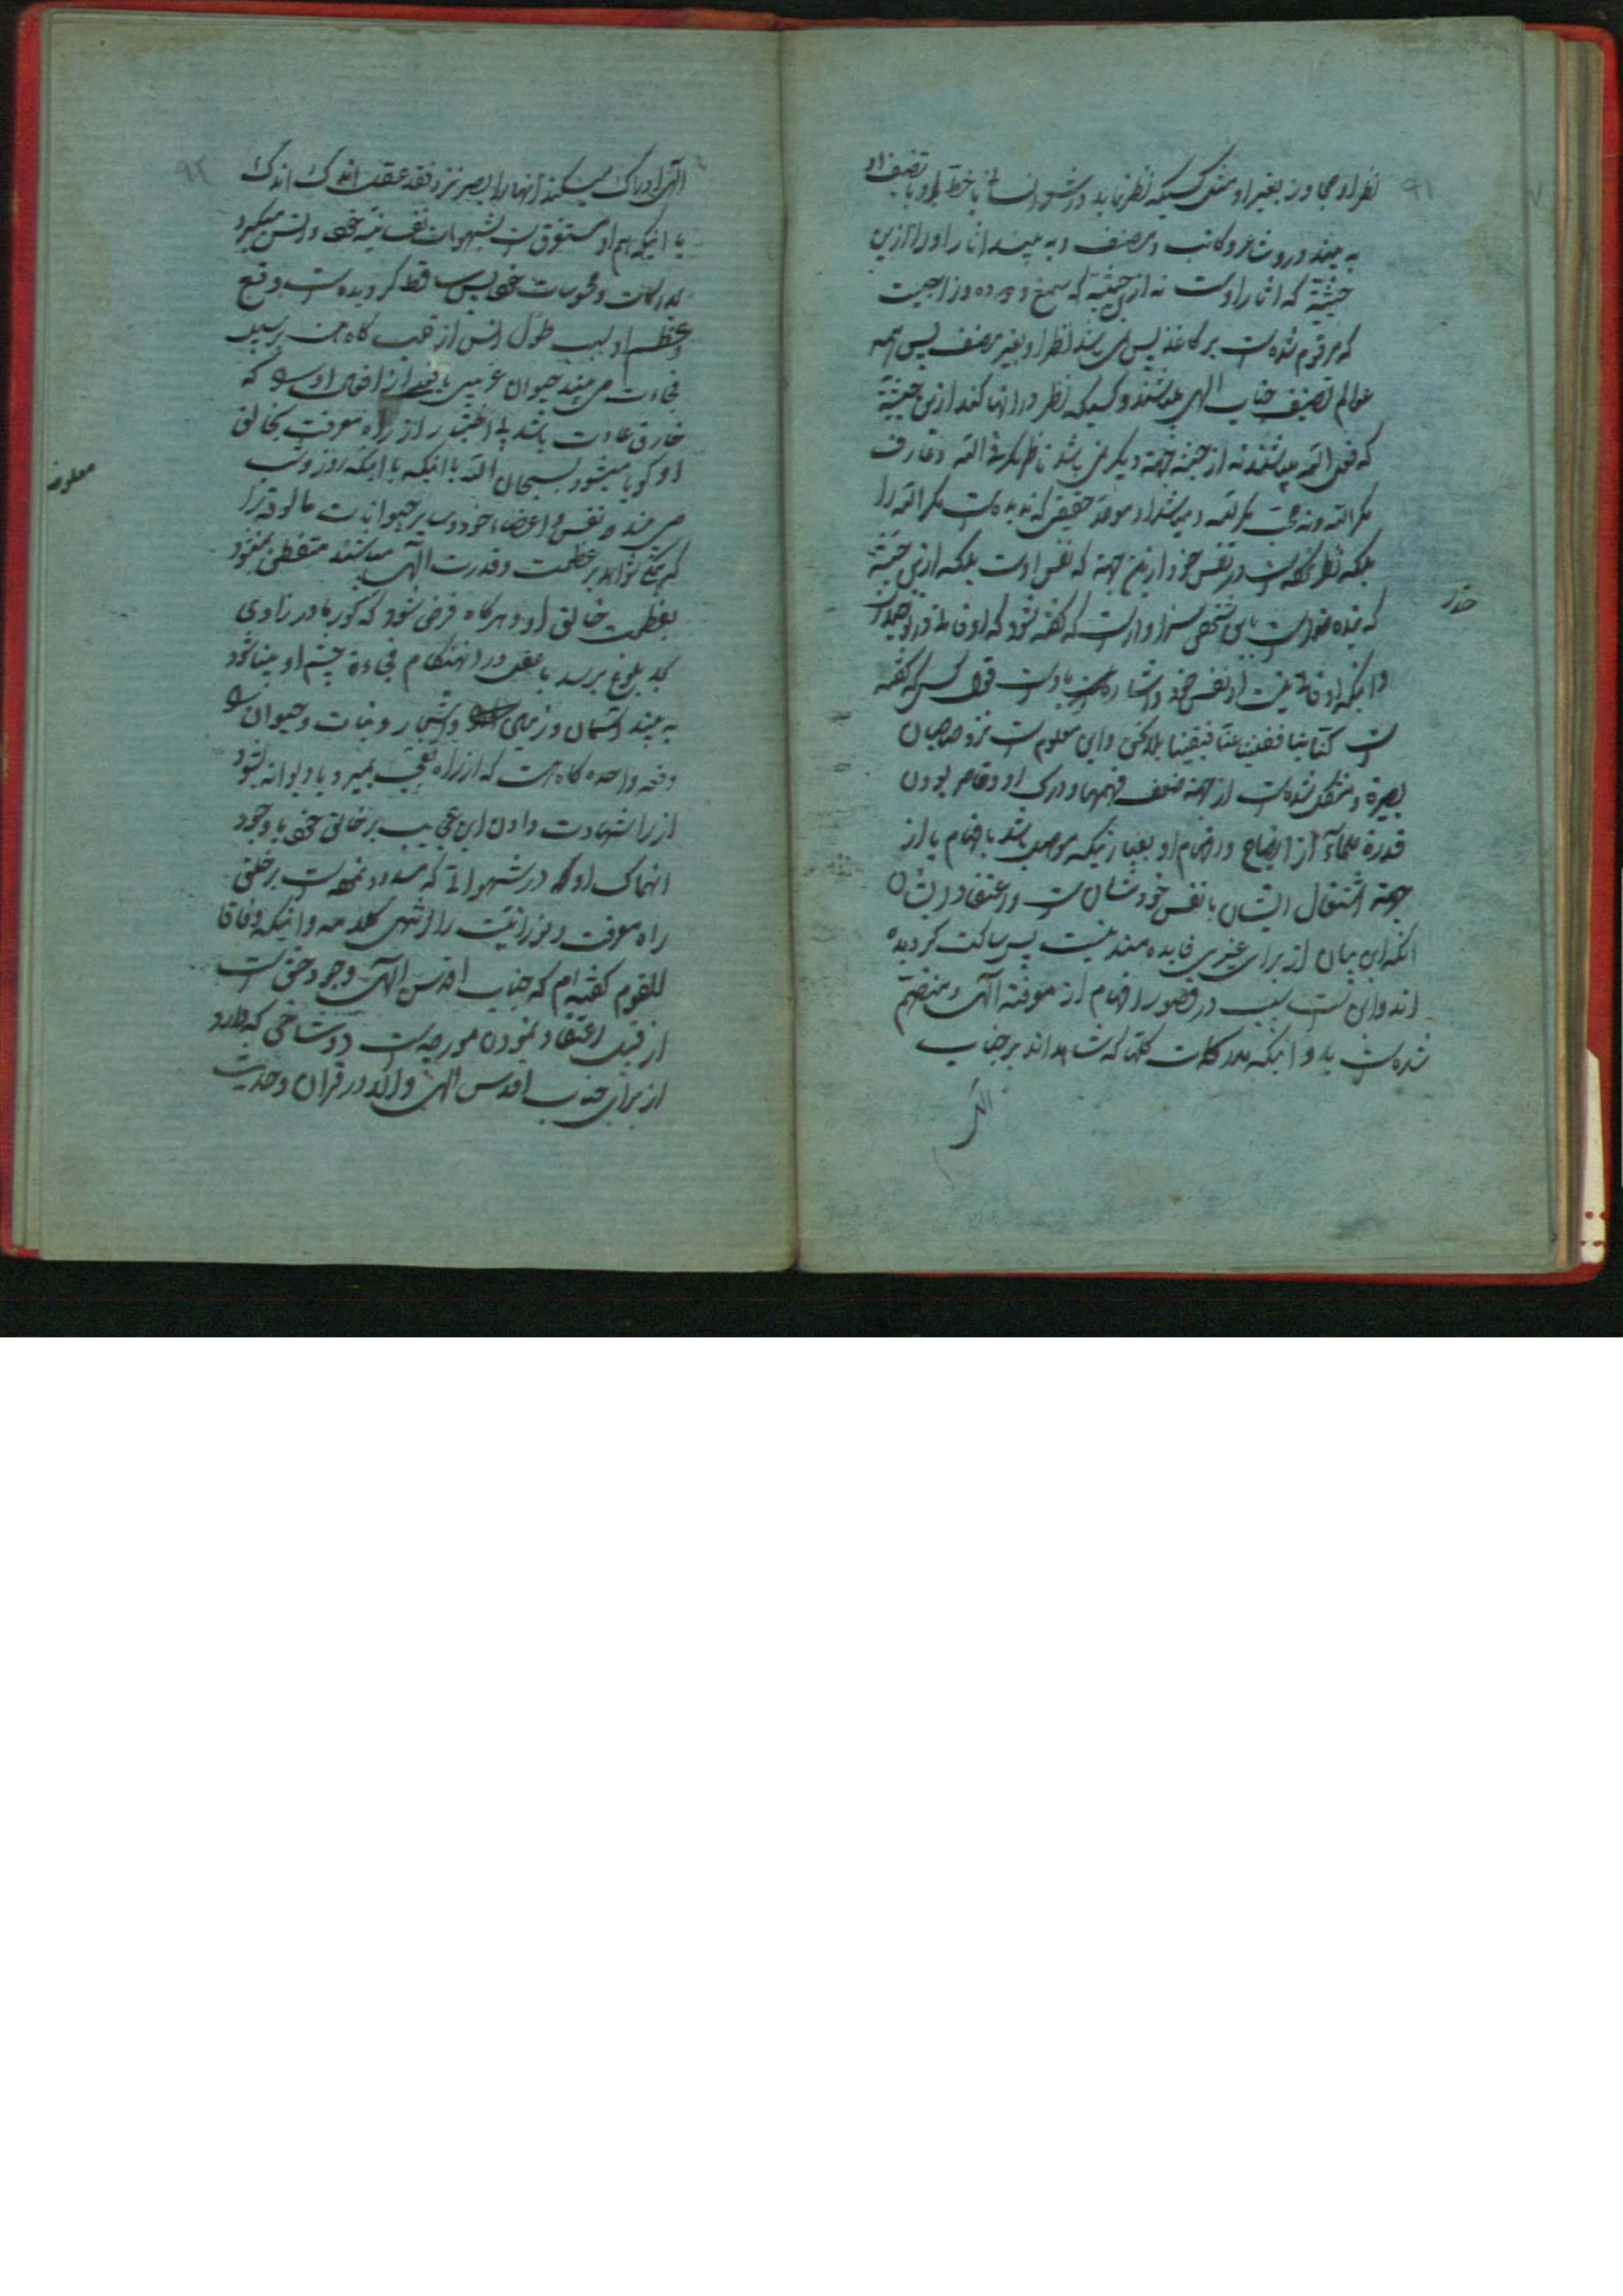 ۹۱
نظر او مجاوز بغیر او مثل کسیکه نظر نماید در شعر انسانی یا خط او یا تصنیف او
به بیند درو شاعر و کاتب و مصنف و به بیند اثار او را ازین
حیثیة که اثار اوست نه از حیثیة که صمغ و وزاجیت
که مرقوم شده است بر کاغذ پس نمی باشد نظر او بغیر مصنف پس همه
عوالم تصنیف جناب الهی میباشند و کسیکه نظر در انها کند ازین حیثیة
که فعل الله میباشند نه از حیثیة جهة دیگر نمی باشد ناظر مکر فی الله و عارف
مکر الله و نه محب مکر لله و میباشد او موحد حقیقی که ندیده است مکر الله را
بلکه نظر نکرده است در نفس خود ازین جهة که نفس اوست بلکه ازین حیثیة
که بنده خداست این شخص سزاوار است که گفته شود که او فانی در توحید است
و اینکه او فانیست از نفس خود و اشاره باوست قول کسی که گفته
است کنا بنا ففنینا عنا فبقینا بلا نحن و این معلوم است نزد صاحبان
بصیرة و مشکل شده است از جهة ضعف فهمها و درک او و قاصر بودن
قدرة علماء از ایضاح و افهام او بعبارتیکه موصل باشد بافهام یا از
جهة اشتغال ایشان بانفس خودشان است و اعتقاد ایشان
انکه این بیان از برای غیری فایده مند نیست پس ساکت کردیده
اند و این است سبب در قصور افهام از معرفة الهی و منضم
شده است باو اینکه مدرکات کلها که شاهداند بر جناب
الهی
حذر
۹۲
الهی ادراک میکند انها را بصر نزد فقد عقل اندک اندک
با اینکه هم او مستغرق است بشهوات نفسانیة خود و انس میکیرد
بمدرکات و محسوسات خود پس ساقط کردیده است وقع
و عظم او بسبب طول انس از قلب کاه هست
فجاءة می بیند حیوان غریبی یا فعلی از افعال او سبحانه که
خارق عادت باشد بی اختیار از راه معرفت بخالق
او کویا میشود بسبحان الله با اینکه روز و شب
می بیند نفس و اعضاء خود و سایر حیوانات مالوفه را
که شواهد بر عظمت و قدرت الهی میباشند متفطن نمیشود
بعظمت خالق او و هرکاه فرض شود که کور مادر زادی
بحد بلوغ برسد با عقل در انهنکام فجاءة چشم او بینا شود
به بیند اسمان و زمین و اشجار و نبات و حیوان
دفعه واحده کاه هست که از راه تعجب بمیرد یا دیوانه شود
از راه شهادت دادن این عجایب بر خالق خود با وجود
انهماک او در شهواتی که مسدود نموده است بر خلق
راه معرفت و نورانیت را انتهی کلامه و اینکه وفاقا
للقوم کفته ام که جناب اقدس الهی وجود حق است
از قبل اعتقاد نمودن مورچه است دو شاخی که دارد
از برای جناب اقدس الهی و الا در قران و حدیث